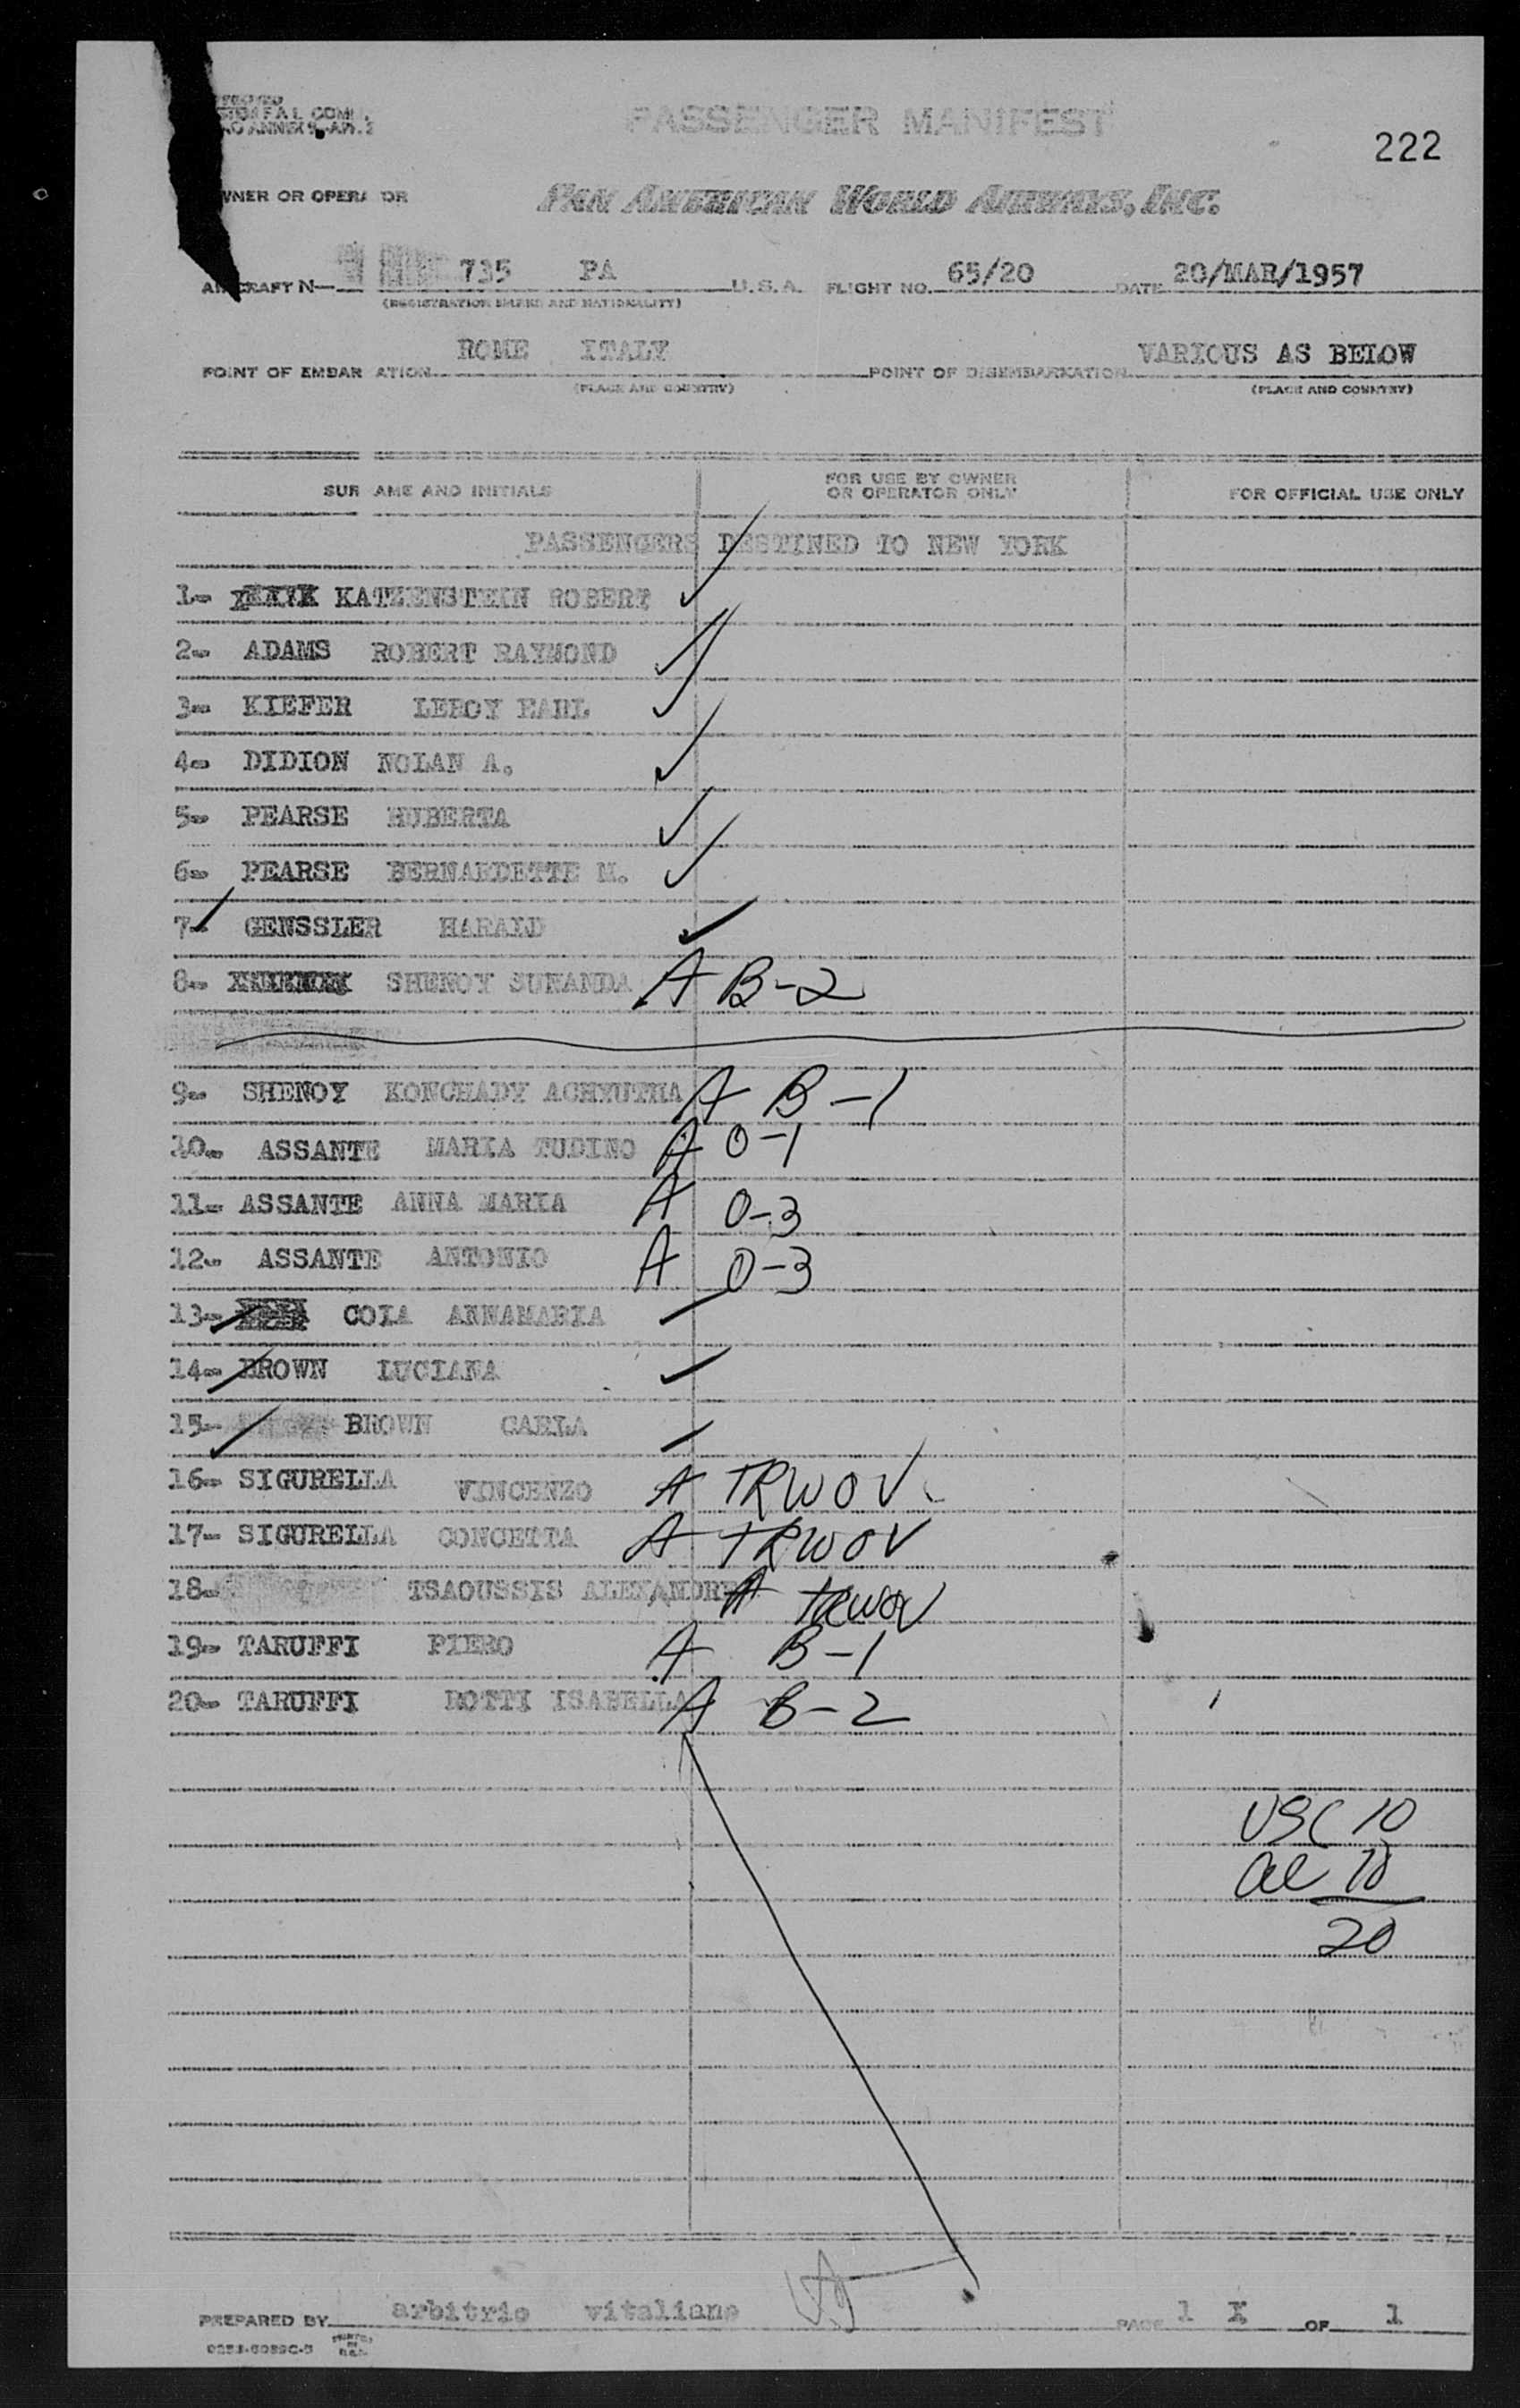 PASSENGER MANIFEST
222
OWNER OR OPERATOR PAN AMERICAN WORLD AIRWAYS, INC.
AIRCRAFT N— 735 PA U.S.A. FLIGHT NO. 65/20 DATE 20/MAR/1957
(REGISTRATION MARKS AND NATIONALITY)
POINT OF EMBARKATION ROME ITALY POINT OF DISEMBARKATION VARIOUS AS BELOW
(PLACE AND COUNTRY) (PLACE AND COUNTRY)
SURNAME AND INITIALS FOR USE BY OWNER OR OPERATOR ONLY FOR OFFICIAL USE ONLY
PASSENGERS DESTINED TO NEW YORK
1- KATZENSTEIN ROBERT
2- ADAMS ROBERT RAYMOND
3- KIEFER LEROY EARL
4- DIDION NOLAN A.
5- PEARSE HUBERTA
6- PEARSE BERNARDETTE M.
7- GENSSLER HARALD
8- SHENOY SUNANDA A B-2
9- SHENOY KONCHADY ACHYUTHA A B-1
10- ASSANTE MARIA TUDINO A O-1
11- ASSANTE ANNA MARIA A O-3
12- ASSANTE ANTONIO A O-3
13- COIA ANNAMARIA
14- BROWN LUCIANA
15- BROWN CARLA
16- SIGURELLA VINCENZO A TRWOV
17- SIGURELLA CONCETTA A TRWOV
18- TSAOUSSIS ALEXANDRE A TRWOV
19- TARUFFI PIERO A B-1
20- TARUFFI ROTTI ISABELLA A B-2
USC 10
al 10
20
PREPARED BY arbitrio vitaliano PAGE 1 OF 1